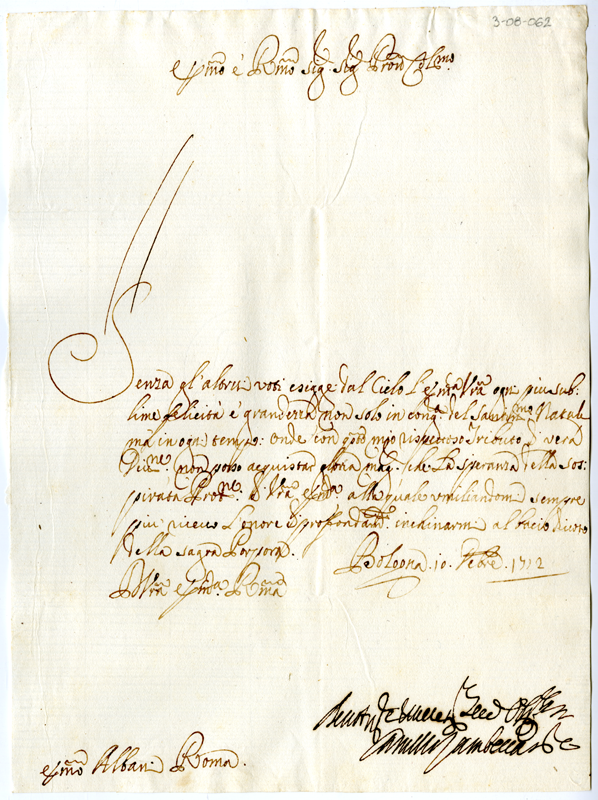 3-08-062
Em̃o è R̃mo Sig.r Sig.r Pron Colmo
Senza gl'altrui voti esigge dal Cielo l'Em̃za Vrã ogni più sub:
lime felicità è grandezza non solo in cong.a del Santissmo Natale
mà in ogni tempo: onde con qto mio rispettoso Tributo d vera
non posso acquistar gloria mag.e che la speranza della sos:
pirata Protne d Vrã Em̃za alla quale umiliandomi sempre
più ricevo l'onore d profondamte inchinarmi al bacio
della Sagra Porpora.
Bologna. 10. Xbre. 1712
D Vrã Em̃za R̃ma
Camillo
Em̃o Albani Roma.